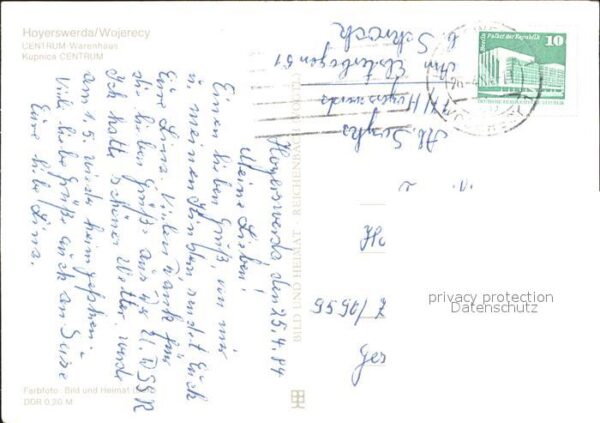 Hoyerswerda/Wojerecy
CENTRUM-Warenhaus
Kupnica CENTRUM
Hoyerswerda den 25.4.84
Meine Lieben!
Einen lieben Gruß, von mir
u. meinen Kindern sendet Euch
Eure Lina. Vielen Dank für
die lieben Grüße aus der U.d.SSR
Ich hatte schönes Wetter. werde
am 1.5. wieder heimgefahren
Viele liebe Grüße auch an Suse
Eure liebe Lina.
Farbfoto: Bild und Heimat
DDR 0,20 M
BILD UND HEIMAT REICHENBACH
Berlin, Palast der Republik
10
DEUTSCHE DEMOKRATISCHE REPUBLIK
Hoyerswerda
Am Elsterbogen 51
b. Schroth
9590/Z
Ger
privacy protection
Datenschutz